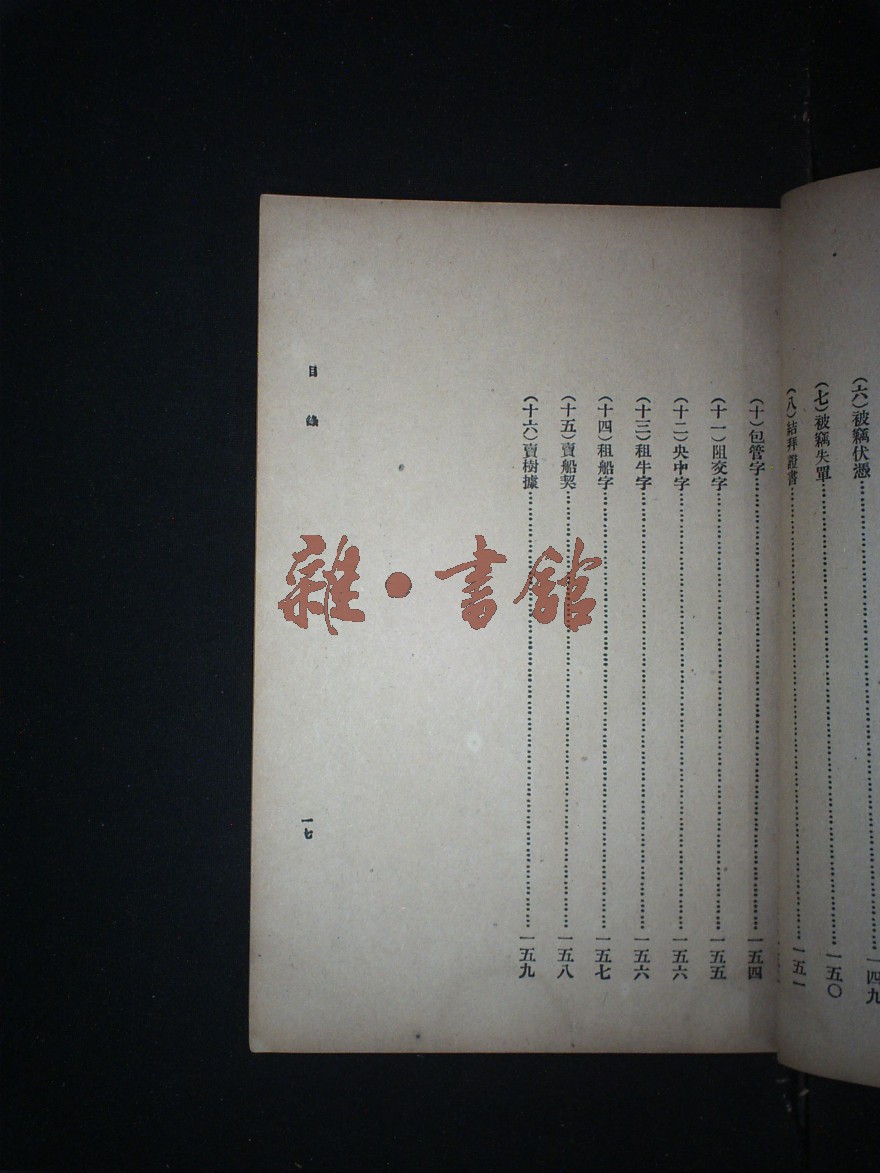 (六)被竊伏憑……一四九
(七)被竊失單……一五〇
(八)結拜證書……一五一
(十)包管字……一五四
(十一)阻交字……一五五
(十二)央中字……一五六
(十三)租牛字……一五六
(十四)租船字……一五七
(十五)賣船契……一五八
(十六)賣樹據……一五九
目錄
一七
雜·書館